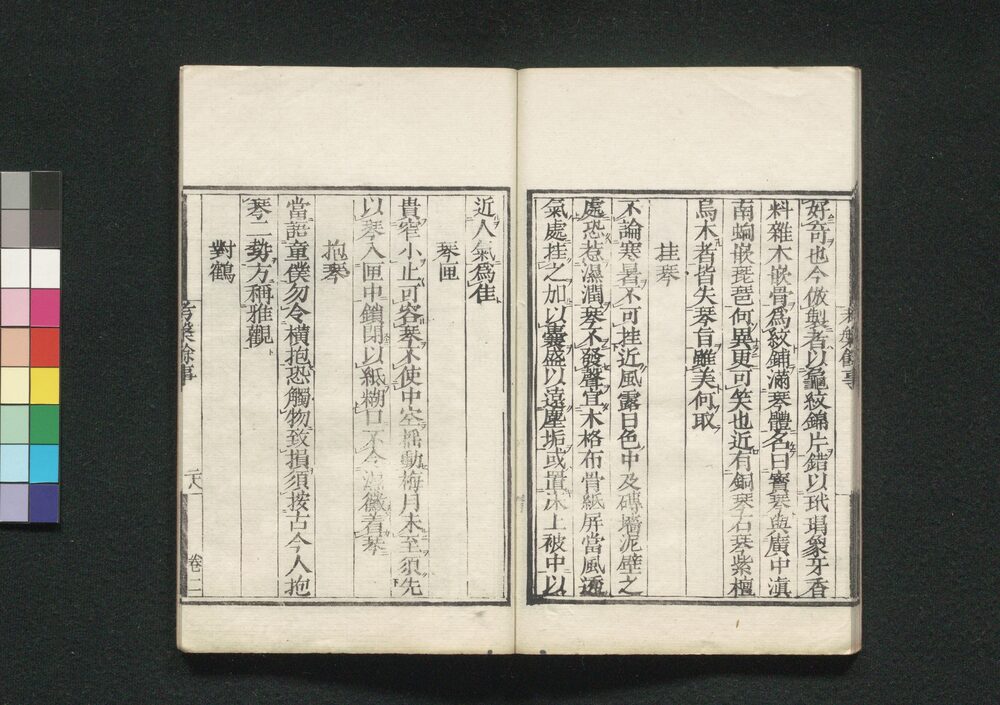 好奇也今倣製者以龜紋錦片錯以玳瑁象牙香
料雜木嵌骨為紋鋪滿琴體名曰寶琴與廣中滇
南蜔嵌琵琶何異更可笑也近有銅琴石琴紫檀
烏木者皆失琴旨雖美何取
挂琴
不論寒暑不可挂近風露日色中及磚墻泥壁之
處恐惹濕潤琴不發聲宜木格布骨紙屏當風透
氣處挂之加以囊盛以遠塵垢或置床上被中以
近人氣為佳
琴匣
貴窄小止可容琴不使中空搖動梅月未至須先
以琴入匣中鎖閉以紙糊口不令濕黴着琴
抱琴
當語童僕勿令橫抱恐觸物致損須按古今人抱
琴二勢方稱雅觀
對鶴
考槃餘事
卷二